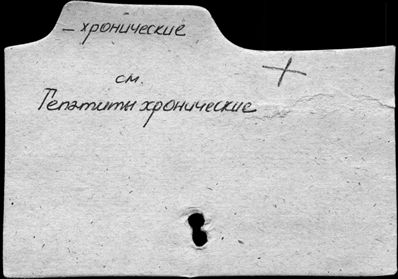 – хронические
см.
Гепатиты хронические